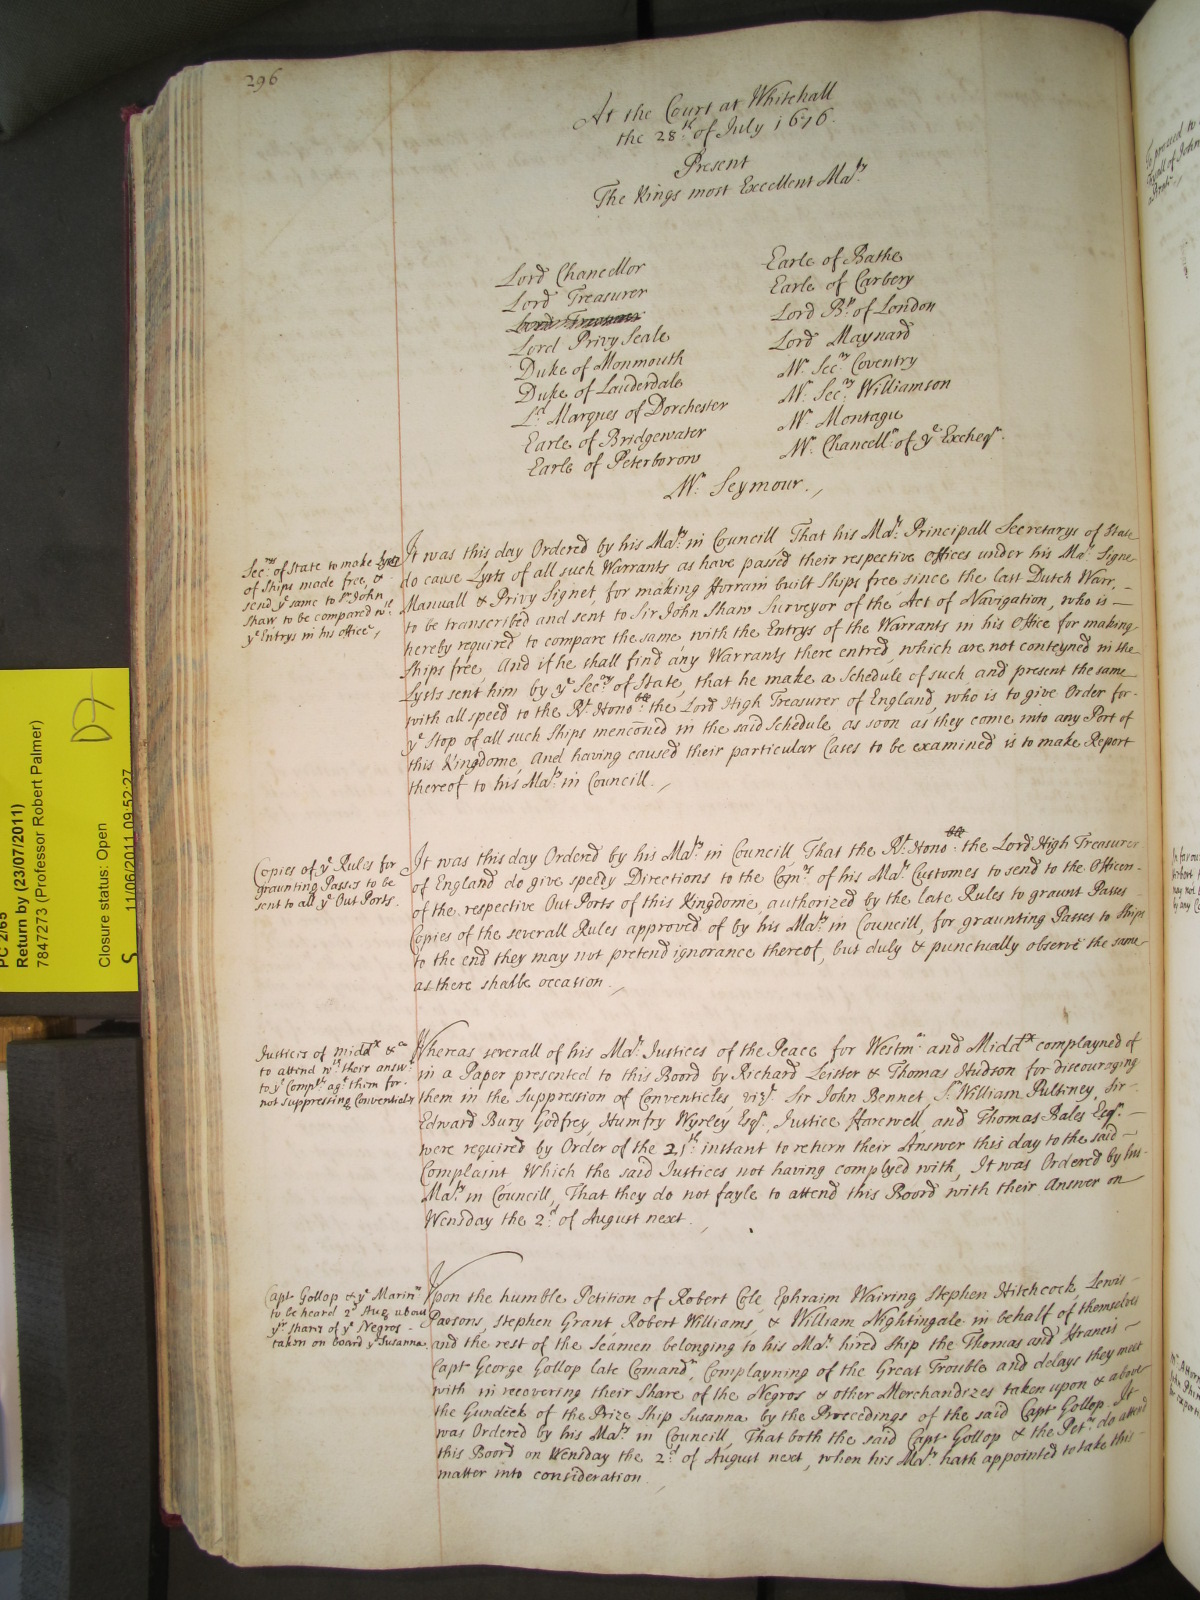 296
At the Court at Whitehall
the 28th of July 1676.
Present
The Kings most Excellent Maty
Lord Chancellor
Lord Treasurer
Lord Privy Seale
Duke of Monmouth
Duke of Lauderdale
Ld Marques of Dorchester
Earle of Bridgewater
Earle of Peterborow
Earle of Bathe
Earle of Carbery
Lord Bp of London
Lord Maynard
Mr Secry Coventry
Mr Secry Williamson
Mr Montagu
Mr Chancellr of ye Excheqr.
Mr Seymour.,
Secrys of State to make Lysts
of Ships made free, &
send ye same to Sr John
Shaw to be compared wth
ye Entrys in his office,
It was this day Ordered by his Maty in Councill That his Mats Principall Secretarys of State
do cause Lysts of all such Warrants as have passed their respective Offices under his Mats Signe
Manuall & Privy Signet, for making Forrain built Ships free since the last Dutch Warr,
to be transcribed and sent to Sir John Shaw Surveyor of the Act of Navigation, who is
hereby required to compare the same with the Entrys of the Warrants in his Office for making
Ships free. And if he shall find any Warrants there entred, which are not conteyned in the
Lysts sent him by ye Secrys of State, that he make a Schedule of such, and present the same
with all speed to the Rt Honoble the Lord High Treasurer of England, who is to give Order for
ye Stop of all such Ships menconed in the said Schedule as soon as they come into any Port of
this Kingdome, And having caused their particular Cases to be examined is to make Report
thereof to his Maty in Councill.,
Copies of ye Rules for
graunting Passes to be
sent to all ye Out Ports.
It was this day Ordered by his Maty in Councill, That the Rt Honoble the Lord High Treasurer
of England do give speedy Directions to the Comrs of his Mats Customes to send to the Officers
of the respective Out Ports of this Kingdome authorized by the late Rules to graunt Passes
Copies of the severall Rules approved of by his Maty in Councill, for graunting Passes to Ships
to the end they may not pretend ignorance thereof, but duly & punctually observe the same
as there shalbe occasion.,
Justices of Middx &ca
to attend wth their answr
to ye Complt agt them for
not suppressing Conventicles
Whereas severall of his Mats Justices of the Peace for Westmr and Middx complayned of
in a Paper presented to this Boord by Richard Leister & Thomas Hudson for discouraging
them in the Suppression of Conventicles, vizt. Sir John Bennet, Sr William Pultiney, Sir
Edward Bury Godfrey, Humfry Wyrley Esqr, Justice Harewell, and Thomas Bales Esqr.
were required by Order of the 21th instant to return their Answer this day to the said
Complaint Which the said Justices not having complyed with, It was Ordered by his
Maty in Councill, That they do not fayle to attend this Boord with their Answer on
Wensday the 2d of August next.
Capt Gollop & ye Marinrs
to be heard 2d Aug. about
yr shares of ye Negros
taken on board ye Susanna.
Upon the humble Petition of Robert Cole, Ephraim Wairing, Stephen Hitchcock, Lewis
Parsons, Stephen Grant Robert Williams, & William Nightingale in behalf of themselves
and the rest of the Seamen belonging to his Mats hired Ship the Thomas and Francis
Capt George Gollop late Comandr, Complayning of the Great Trouble and delays they meet
with in recovering their Share of the Negros & other Merchandizes taken upon & above
the Gundeck of the Prize Ship Susanna by the Proceedings of the said Capt Gollop. It
was Ordered by his Maty in Councill, That both the said Capt Gollop & the Petrs do attend
this Boord on Wensday the 2d of August next, when his Maty hath appointed to take this
matter into consideration
PC 2/65
Return by (23/07/2011)
7847273 (Professor Robert Palmer)
Closure status: Open
11/06/2011 09:52:27